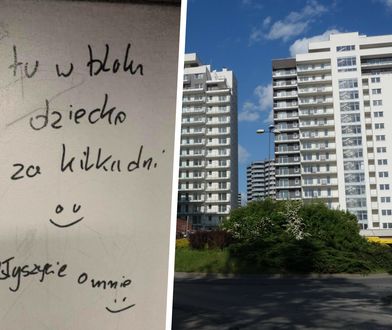 tu w bloku
dziecko
za kilka dni
Usłyszycie o mnie